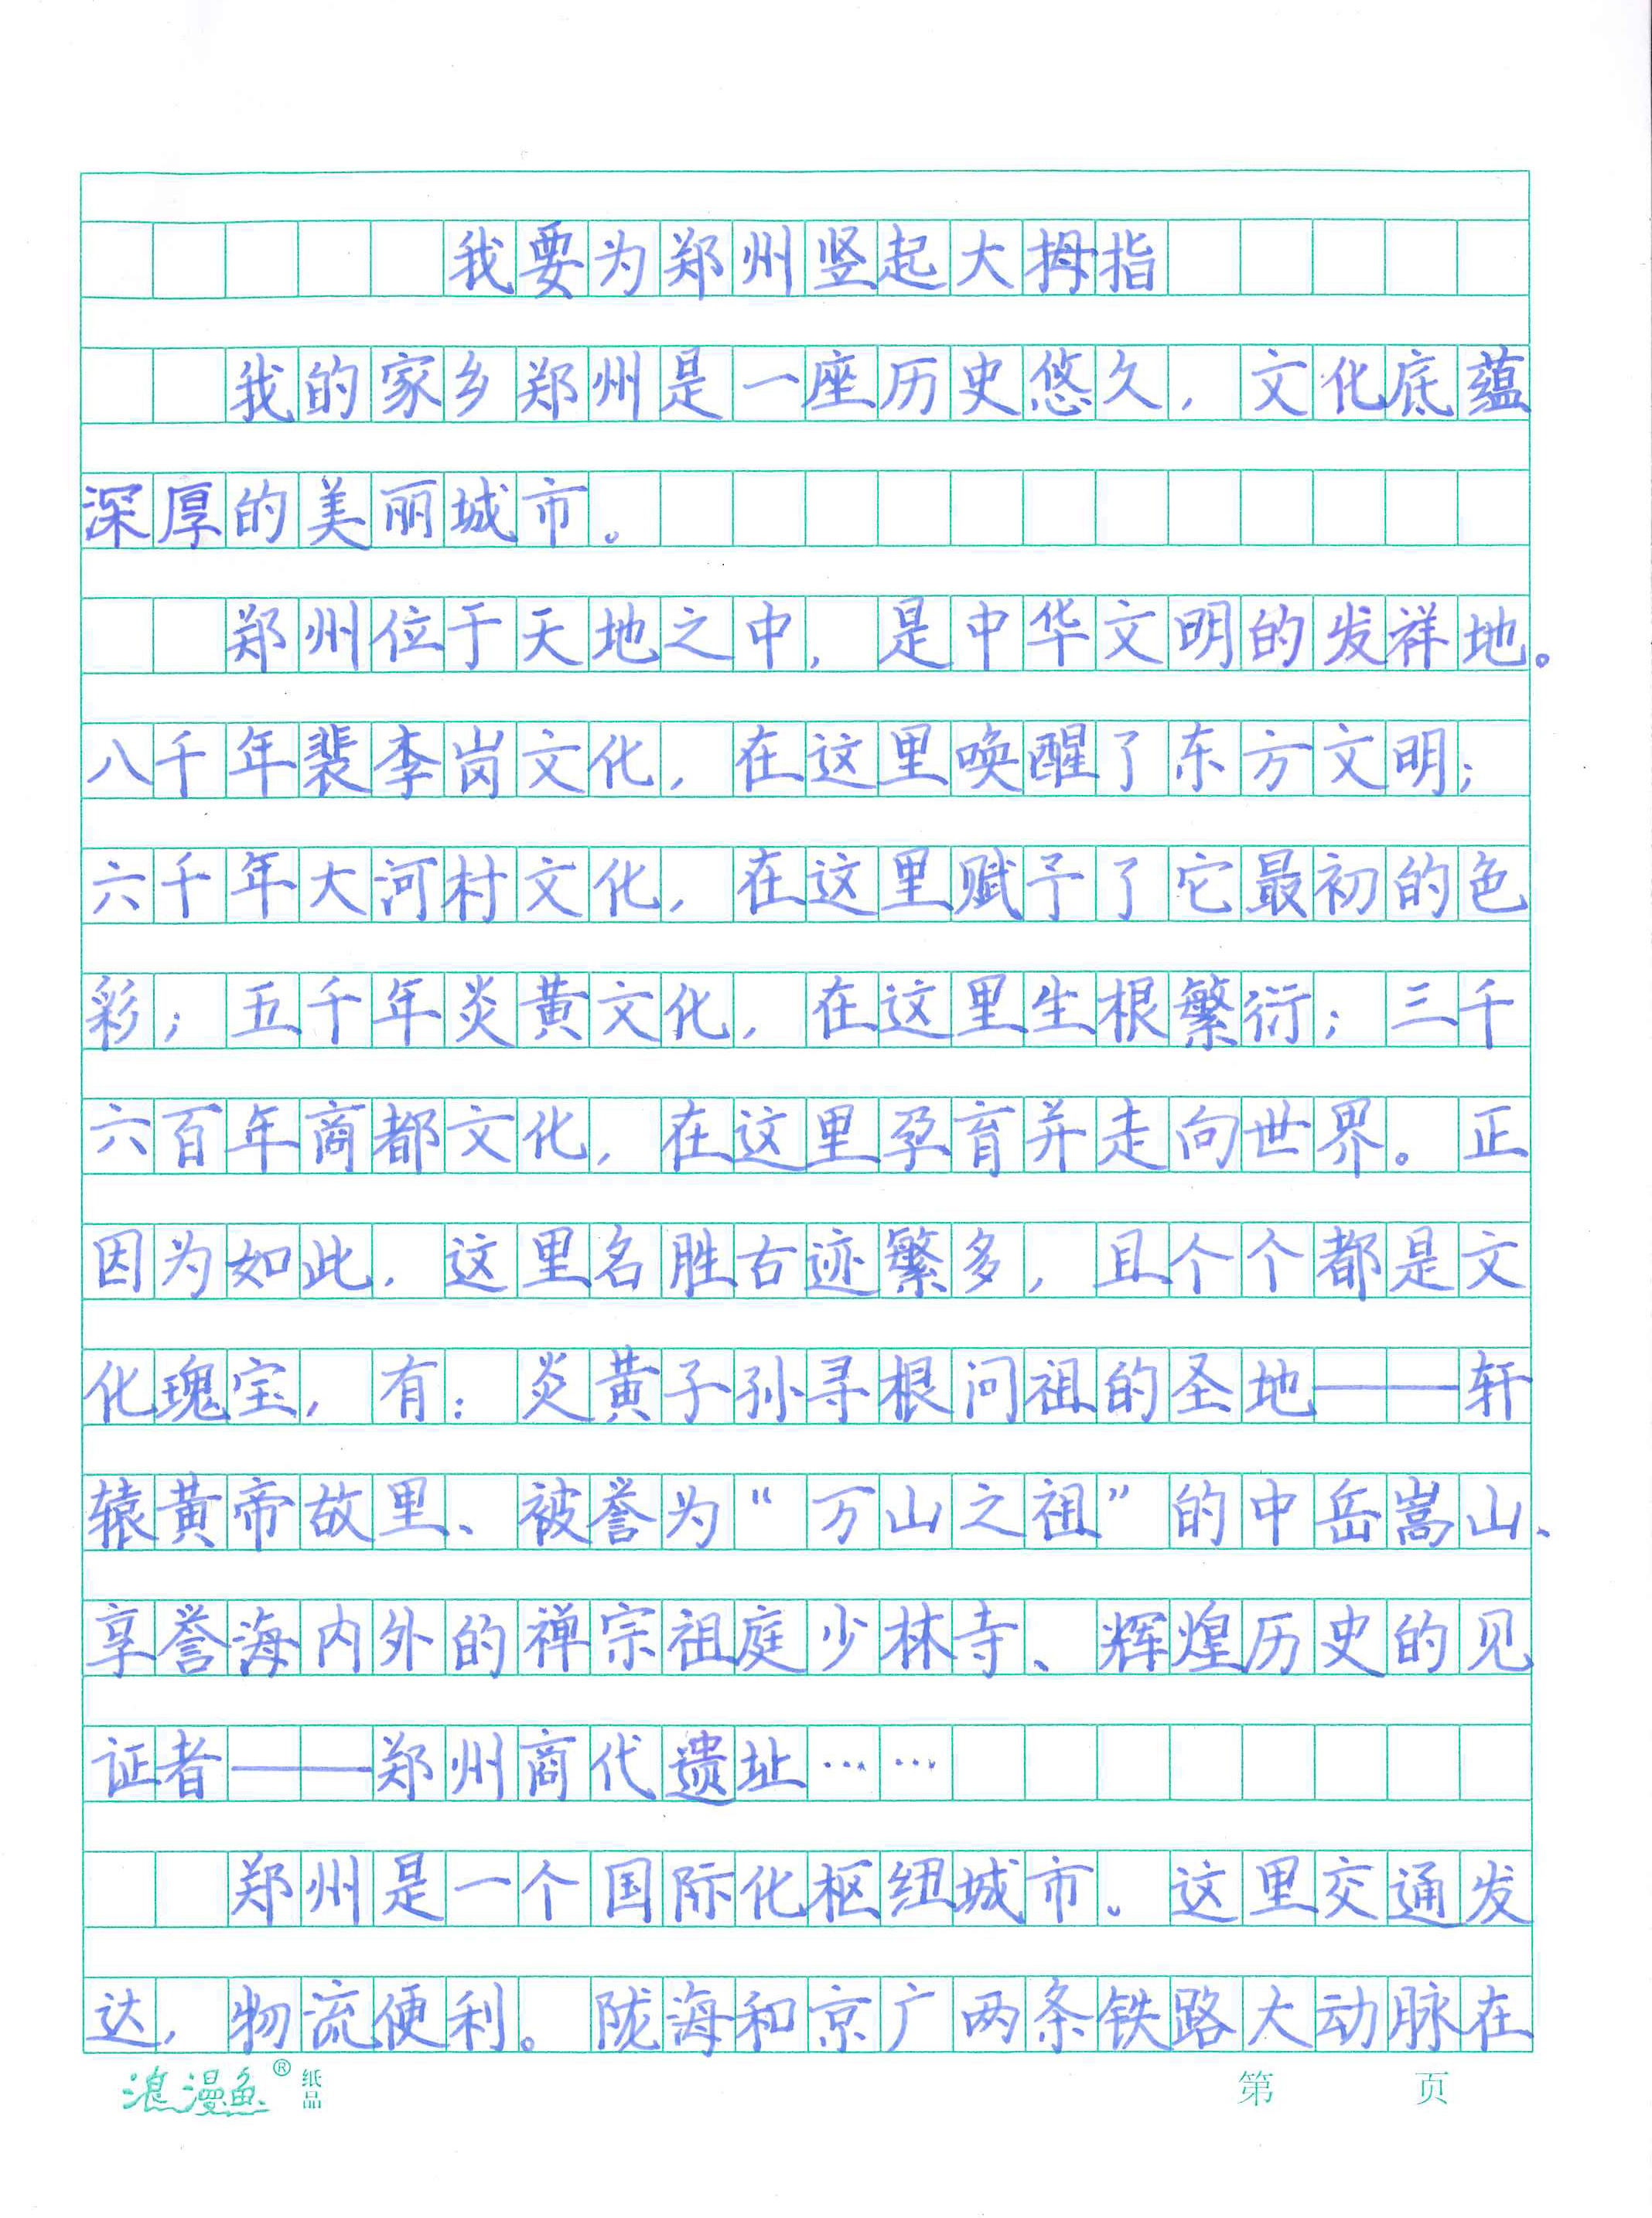 我要为郑州竖起大拇指
我的家乡郑州是一座历史悠久，文化底蕴
深厚的美丽城市。
郑州位于天地之中，是中华文明的发祥地。
八千年裴李岗文化，在这里唤醒了东方文明；
六千年大河村文化，在这里赋予了它最初的色
彩；五千年炎黄文化，在这里生根繁衍；三千
六百年商都文化，在这里孕育并走向世界。正
因为如此，这里名胜古迹繁多，且个个都是文
化瑰宝，有：炎黄子孙寻根问祖的圣地——轩
辕黄帝故里、被誉为“万山之祖”的中岳嵩山、
享誉海内外的禅宗祖庭少林寺、辉煌历史的见
证者——郑州商代遗址……
郑州是一个国际化枢纽城市。这里交通发
达，物流便利。陇海和京广两条铁路大动脉在
浪漫鱼® 纸品 第 页